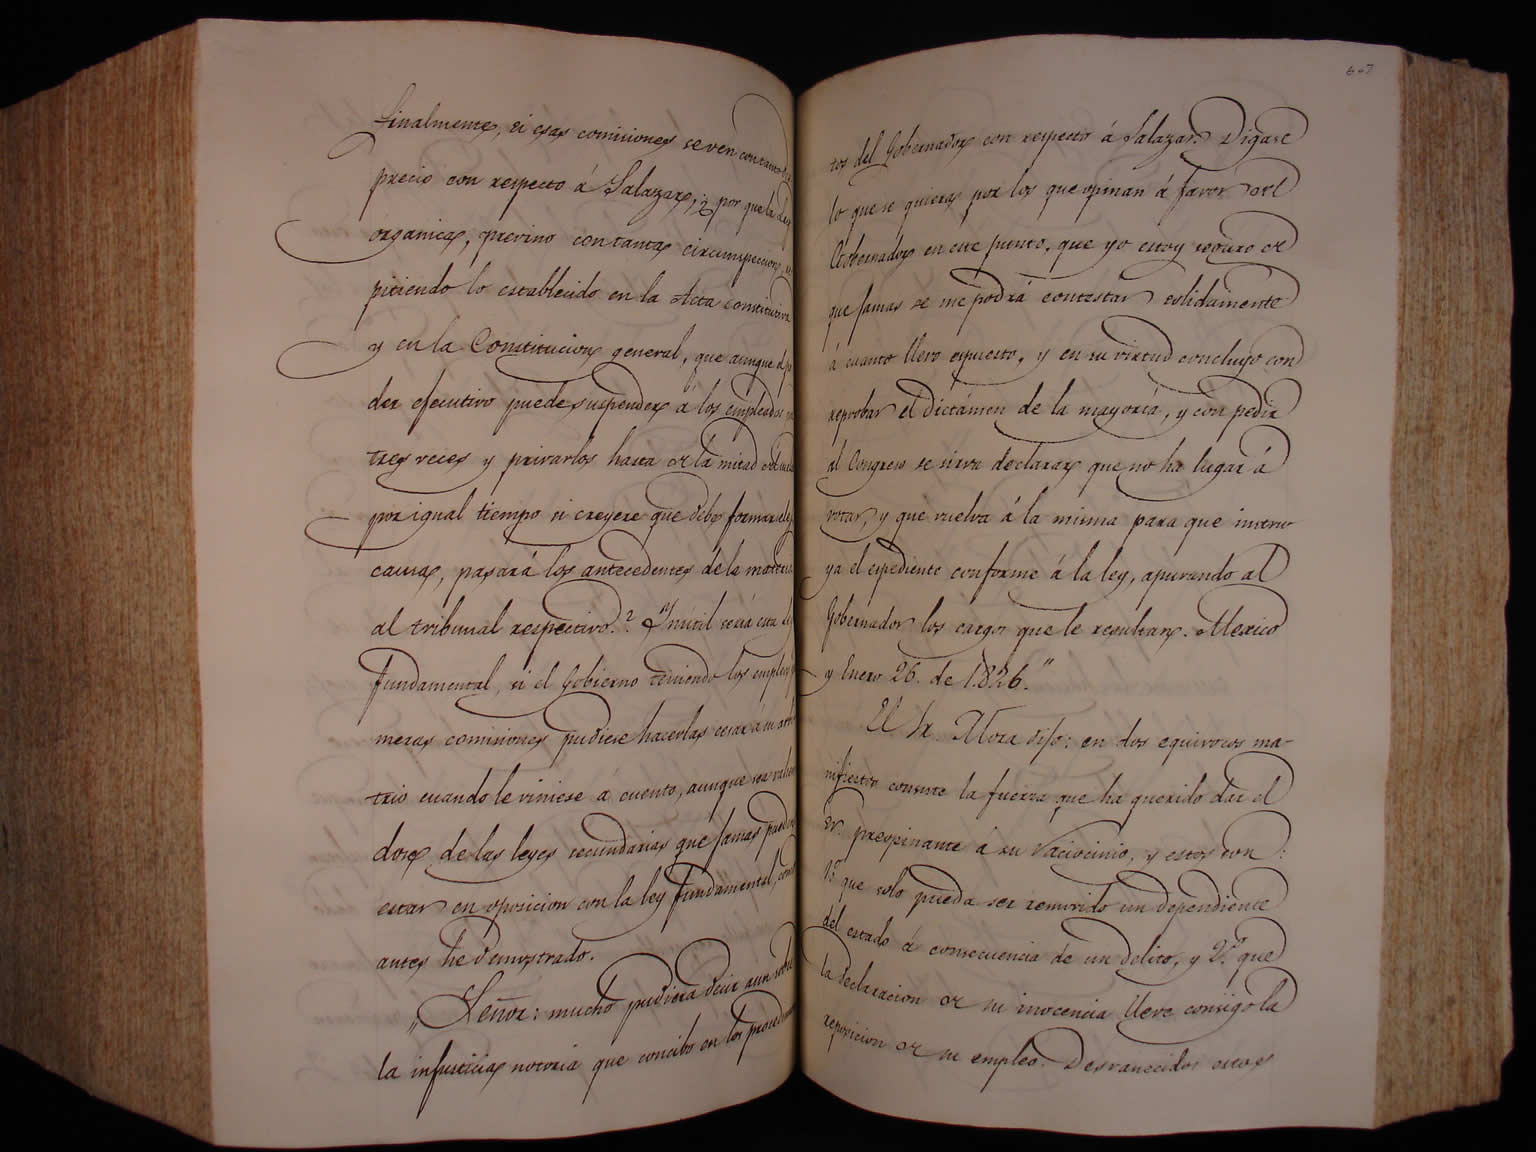 Finalmente, si esas comisiones se ven con tanto des
precio con respecto á Salazar, ¿por que la ley
órganica, previno con tanta circunspeccion, re
pitiendo lo establecido en la Acta constitutiva
y en la Constitucion general, que aunque el po
der ejecutivo puede suspender á los empleados
tres veces y privarlos hasta de la mitad del sueldo
por igual tiempo si creyere que debe formarseles
causa, pasará los antecedentes de la materia
al tribunal respectivo.? Inútil sería esta ley
fundamental, si el Gobierno teniendo los empleos
meras comisiones pudiese hacerlas cesar á su arbi
trio cuando le viniese á cuento, aunque sea valien
dose de las leyes secundarias que jamas pueden
estar en oposicion con la ley fundamental, como
antes he demostrado.
„Señor: mucho pudiera decir aun sobre
la injusticia notoria que concibo en los procedimien
607
tos del Gobernador con respecto á Salazar. Digase
lo que se quiera por los que opinan á favor del
Gobernador en este punto, que yo estoy seguro de
que jamas se me podrá contestar solidamente
á cuanto llevo espuesto, y en su virtud concluyo con
reprobar el dictámen de la mayoría, y con pedir
al Congreso se sirva declarar que no ha lugar á
votar, y que vuelva á la misma para que instru
ya el espediente conforme á la ley, apurando al
Gobernador los cargos que le resultan. Mexico
y Enero 26. de 1826."
El Sr. Mora dijo: en dos equivocos ma-
nifiestos consiste la fuerza que ha querido dar el
Sr. preopinante á su raciocinio, y estos son:
1.º que solo pueda ser removido un dependiente
del estado á consecuencia de un delito, y 2.º que
la declaracion de su inocencia lleve consigo la
reposicion de su empleo. Desvanecidos estos